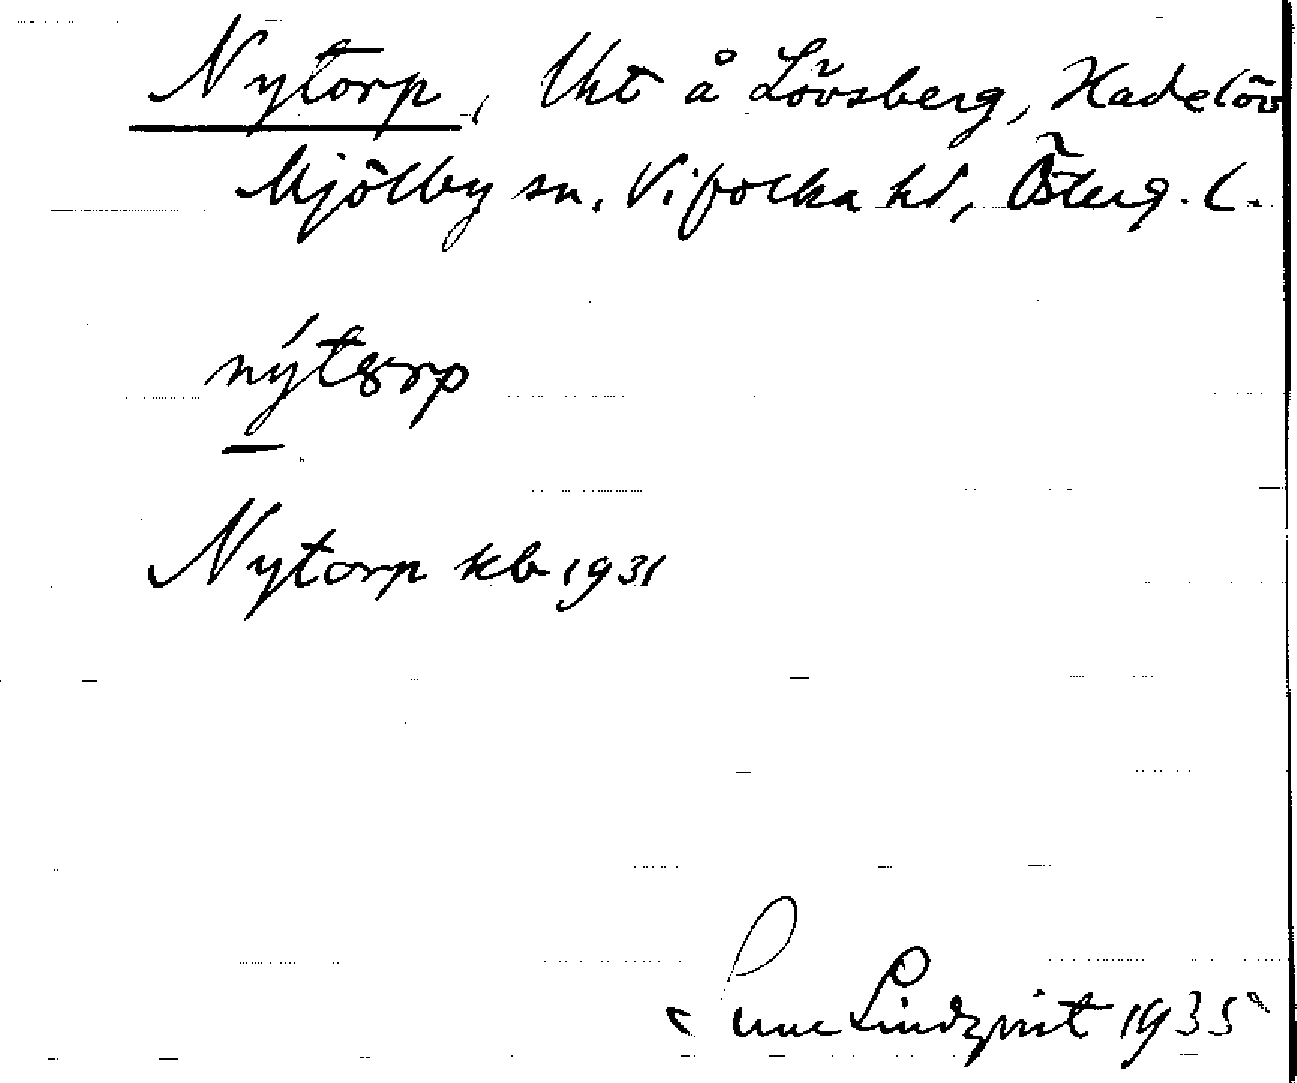 Nytorp, Uht å Lövsberg, Hadelöv
Mjölby sn. Vifolka hd, Österg. l.
nýtɞrp
Nytorp kb 1931
Sune Lindqvist 1935